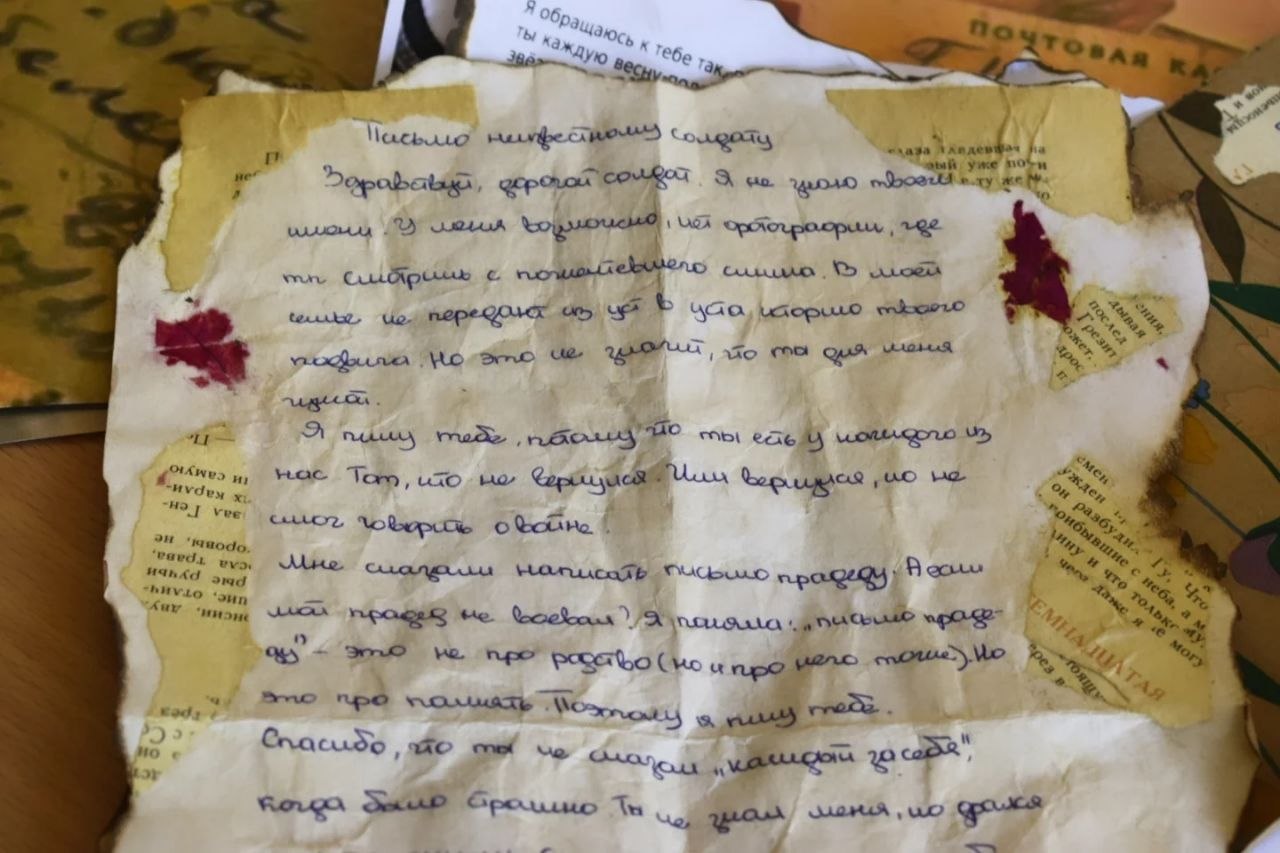 Я обращаюсь к тебе так
ты каждую весну
ПОЧТОВАЯ КА
Письмо неизвестному солдату
Здравствуй, дорогой солдат. Я не знаю твоего
имени. У меня возможно, нет фотографии, где
ты смотришь с пожелтевшего снимка. В моей
семье не передают из уст в уста историю твоего
подвига. Но это не значит, что ты для меня
чужой.
Я пишу тебе, потому что ты есть у каждого из
нас Тот, кто не вернулся. Или вернулся, но не
смог говорить о войне
Мне сказали написать письмо прадеду. А если
мой прадед не воевал? Я поняла: „письмо праде-
ду" - это не про родство (но и про него тоже). Но
это про память. Поэтому я пишу тебе.
Спасибо, что ты не сказал „каждый за себя",
когда было страшно. Ты не знал меня, но дрался
глаза глядевшая на
ый уже поч
ения,
дывая
после
Грезит
ожет,
дрос
он разбуди
рибывшие с неба, а м
ину и что только
чего даже я не могу
ЕМНАДЦАТАЯ
рез в
и самую
х карли-
зал Ген-
горовы, не
сла трава,
рые ручьи
ние, отлич-
энсии, дву